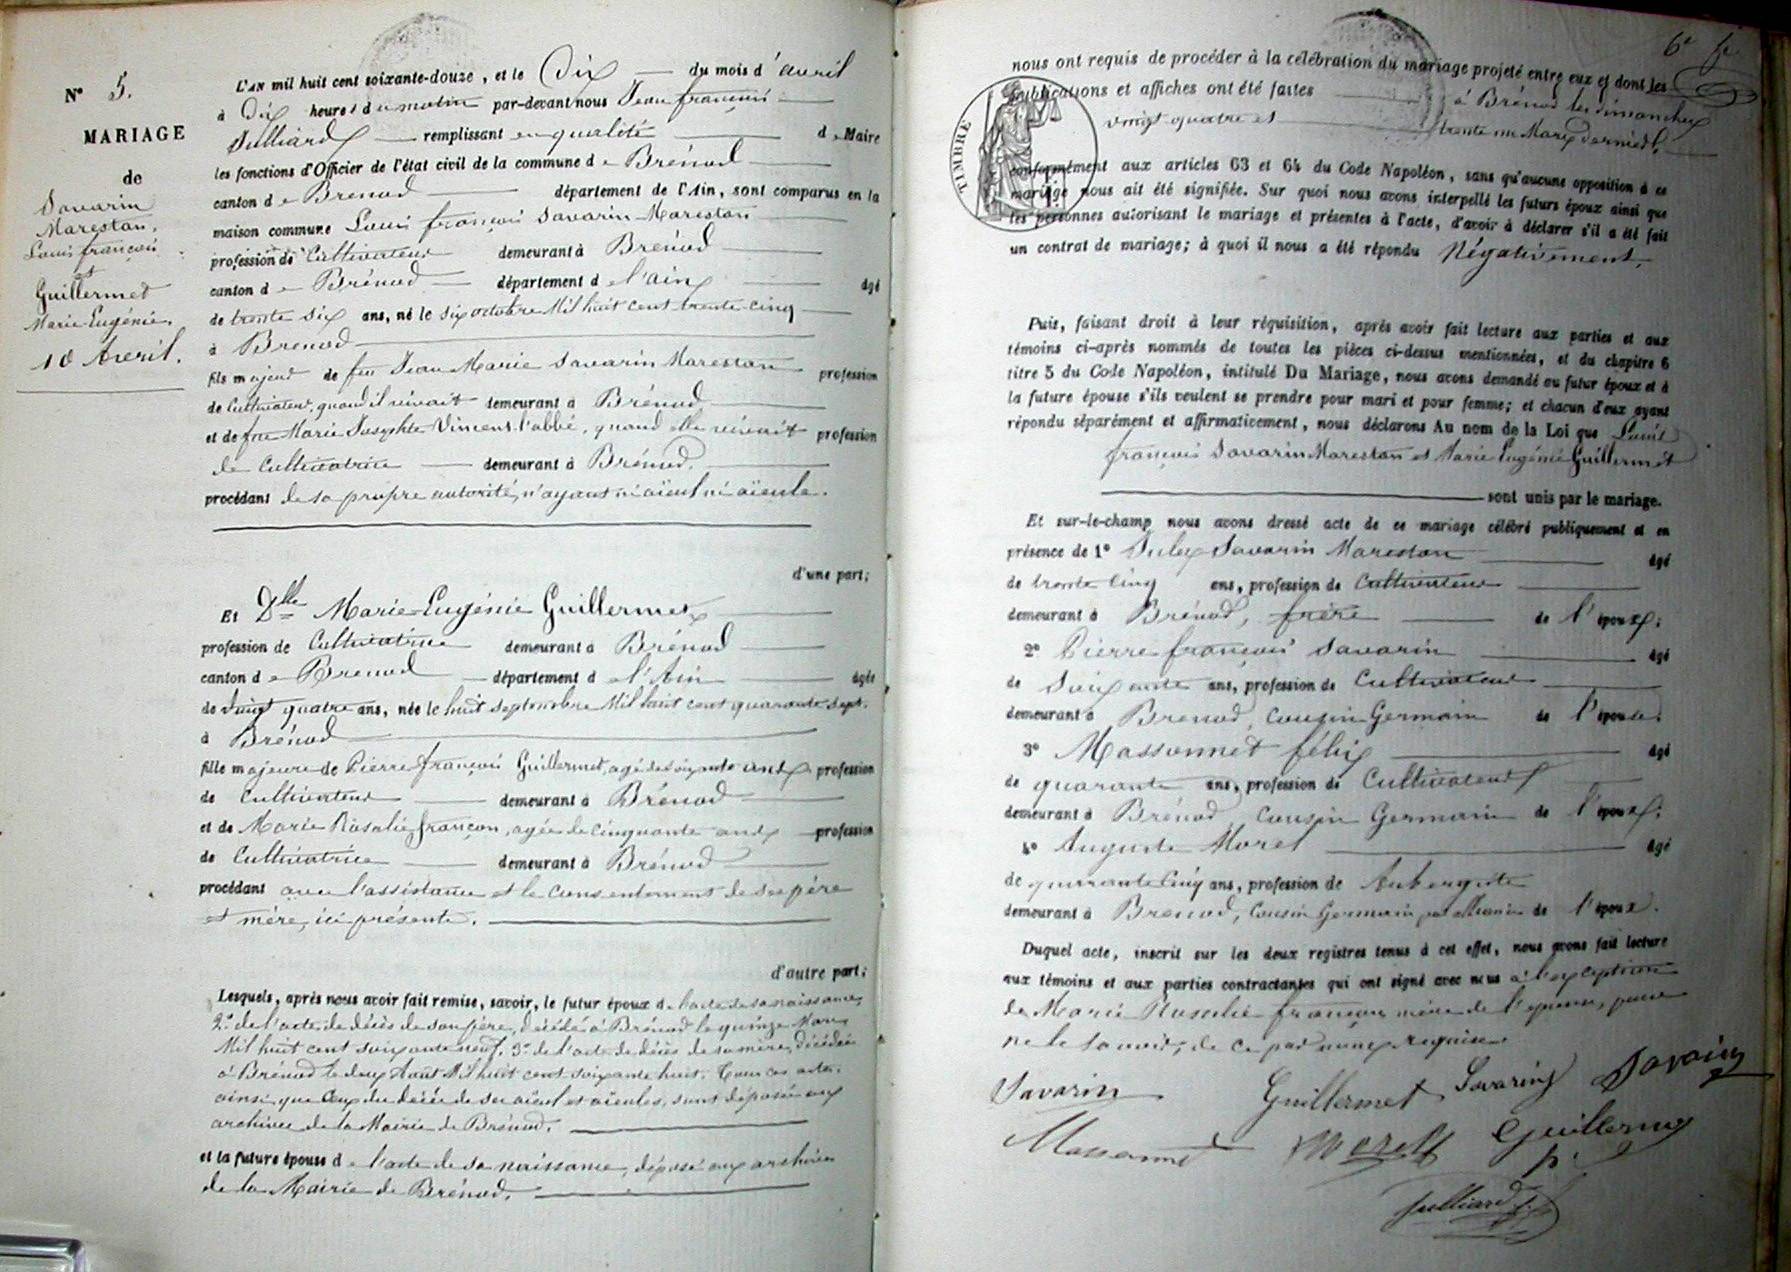 N° 5.
MARIAGE
de
Savarin
Marestan,
Louis françois
et
Guillermet
Marie Eugénie.
10 Avril.
L'AN mil huit cent soixante-douze, et le Dix du mois d'avril
à Dix heures du matin par-devant nous Jean françois
Julliard remplissant en qualité de Maire
les fonctions d'Officier de l'état civil de la commune de Brénod
canton de Brénod département de l'Ain, sont comparus en la
maison commune Louis françois Savarin-Marestan
profession de Cultivateur demeurant à Brénod
canton de Brénod département de l'ain âgé
de trente six ans, né le six octobre Mil huit cent trente-cinq
à Brenod
fils majeur de feu Jean Marie Savarin Marestan profession
de Cultivateur, quand il vivait demeurant à Brénod
et de fne Marie Josephte Vincent-l'abbé, quand elle vivait profession
de Cultivatrice demeurant à Brénod.
procédant de sa propre autorité, n'ayant ni aïeul ni aïeule.
d'une part;
Et Dlle Marie-Eugénie Guillermet
profession de Cultivatrice demeurant à Brénod
canton de Brenod département de l'Ain âgée
de vingt quatre ans, née le huit septembre Mil huit cent quarante sept.
à Brénod
fille majeure de Pierre françois Guillermet, agé de soixante ans profession
de Cultivateur demeurant à Brénod
et de Marie Rosalie françon, agée de cinquante ans profession
de Cultivatrice demeurant à Brénod
procédant avec l'assistance et le consentement de ses père
et mère, ici présents.
d'autre part;
Lesquels, après nous avoir fait remise, savoir, le futur époux de l'acte de sa naissance,
2° de l'acte de décès de son père, décédé à Brénod le quinze Mars
Mil huit cent soixante neuf. 3° de l'acte de décès de sa mère, décédée
à Brénod le deux Août Mil huit cent soixante huit. Tous ces actes.
ainsi que ceux du décès de ses aïeul et aïeules, sont déposés aux
archives de la Mairie de Brénod.
et la future épouse de l'acte de sa naissance, déposé aux archives
de la Mairie de Brénod.
6e f
nous ont requis de procéder à la célébration du mariage projeté entre eux et dont les
publications et affiches ont été faites à Brénod les dimanches
vingt quatre et trente un Mars dernier.
TIMBRE
conformément aux articles 63 et 64 du Code Napoléon, sans qu'aucune opposition à ce
mariage nous ait été signifiée. Sur quoi nous avons interpellé les futurs époux ainsi que
les personnes autorisant le mariage et présentes à l'acte, d'avoir à déclarer s'il a été fait
un contrat de mariage; à quoi il nous a été répondu Négativement.
Puis, faisant droit à leur réquisition, après avoir fait lecture aux parties et aux
témoins ci-après nommés de toutes les pièces ci-dessus mentionnées, et du chapitre 6
titre 5 du Code Napoléon, intitulé Du Mariage, nous avons demandé au futur époux et à
la future épouse s'ils veulent se prendre pour mari et pour femme; et chacun d'eux ayant
répondu séparément et affirmativement, nous déclarons Au nom de la Loi que Louis
françois Savarin Marestan et Marie Eugénie Guillermet
sont unis par le mariage.
Et sur-le-champ nous avons dressé acte de ce mariage célébré publiquement et en
présence de 1° Julex Savarin Marestan âgé
de trente cinq ans, profession de Cultivateur
demeurant à Brénod, frère de l'époux;
2° Pierre françois Savarin âgé
de soixante ans, profession de Cultivateur
demeurant à Brenod, cousin Germain de l'époux.
3° Massonnet félix âgé
de quarante ans, profession de Cultivateur
demeurant à Brénod, Cousin Germain de l'époux;
4° Auguste Morel âgé
de quarante cinq ans, profession de Aubergiste
demeurant à Brenod, Cousin Germain par alliance de l'époux.
Duquel acte, inscrit sur les deux registres tenus à cet effet, nous avons fait lecture
aux témoins et aux parties contractantes qui ont signé avec nous à l'exception
de Marie Rosalie françon mère de l'épouse, pour
ne le savoir, de ce par nous requise.
Savarin Guillermet Savarin Savarin
Massonnet Morel Guillermet
p.
Julliard